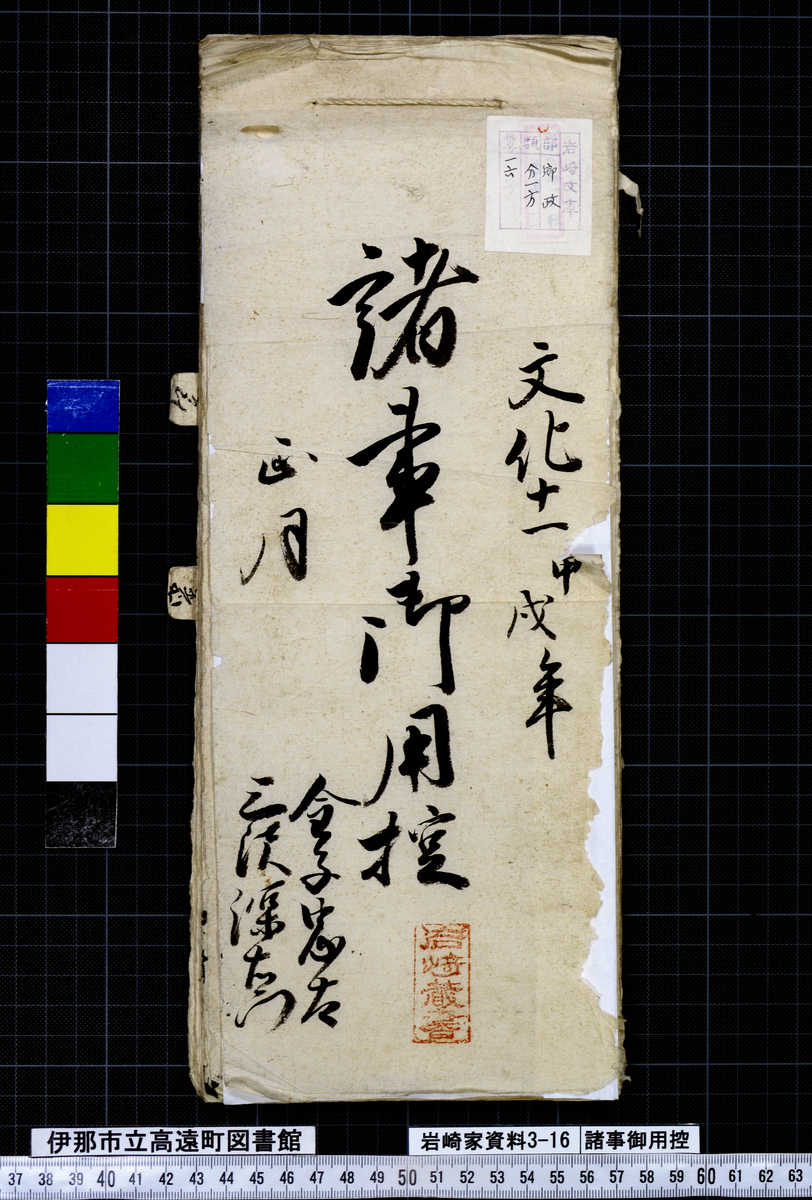 岩崎文庫
部 郷政
類 分一方
一六
文化十一甲戌年
諸事御用控
正月
金子忠右
三沢深右衛門
岩崎蔵書
伊那市立高遠町図書館
岩崎家資料3-16
諸事御用控
37 38 39 40 41 42 43 44 45 46 47 48 49 50 51 52 53 54 55 56 57 58 59 60 61 62 63